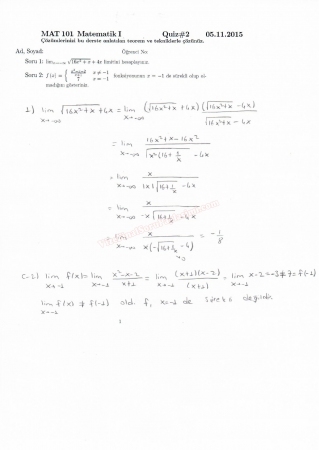 MAT 101 Matematik I Quiz#2 05.11.2015
Çözümlerinizi bu derste anlatılan teorem ve tekniklerle çözünüz.
Ad, Soyad: Öğrenci No:
Soru 1: lim x→-∞ √(16x² + x) + 4x limitini hesaplayınız.
Soru 2: f(x) = { (x²-x-2)/(x+1) x ≠ -1 ; 7 x = -1 fonksiyonunun x = -1 de sürekli olup ol-
madığını gösteriniz.
1) lim x→-∞ √(16x²+x) + 4x = lim x→-∞ (√(16x²+x) + 4x)(√(16x²+x) - 4x) / (√(16x²+x) - 4x)
= lim x→-∞ (16x²+x-16x²) / (√(x²(16+1/x)) - 4x)
= lim x→-∞ x / (|x|√(16+1/x) - 4x)
= lim x→-∞ x / (-x√(16+1/x) - 4x)
= lim x→-∞ x / (x(-√(16+1/x) - 4)) = -1/8
C-2) lim x→-1 f(x) = lim x→-1 (x²-x-2)/(x+1) = lim x→-1 (x+1)(x-2)/(x+1) = lim x→-1 x-2 = -3 ≠ 7 = f(-1)
lim x→-1 f(x) ≠ f(-1) old. f, x=-1 de sürekli değildir.